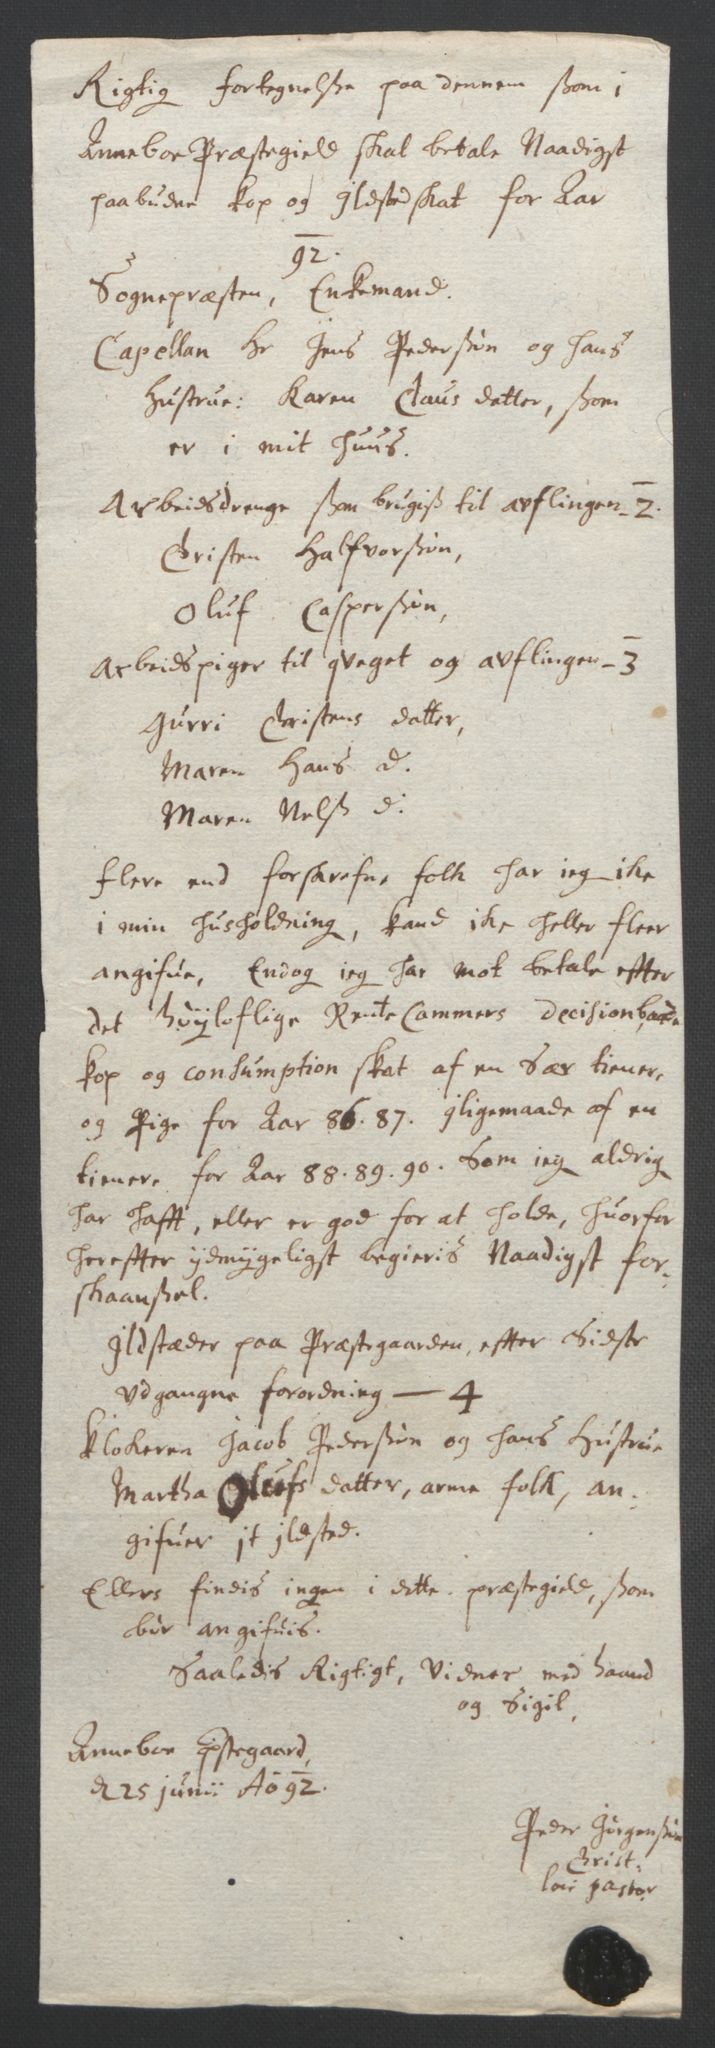 Rigtig fortegnelße paa dennem ßom i
Anneboe Præstegield skal betale Naadigst
paabudne kop og Jldstedskat for Aar
92.
Sognepræsten, Enkemand.
Capellan Hr Jens Pederßøn og hans
Hustrue: Karen Claus datter, ßom
er i mit huus.
Arbeidsdrenge ßom brugiß til avflingen - 2.
Christen Halfvorßøn,
Oluf Casperßøn,
Arbeidspiger til qveget og avflingen - 3
Gurri Christens datter,
Maren Hans d.
Maren Nelß d:
flere end forskrefne folk har ieg ike
i min husholdning, kand ike heller fleer
angifue, Endog ieg har mot betale efter
det høyloflige Rente Cammers decision baade
kop og consumption skat af en Sær tiener,
og Pige for Aar 86. 87. jligemaade af en
tienere for Aar 88. 89. 90. Som ieg aldrig
har hafft, eller er god for at holde, huorfor
hereffter ydmygeligst begieris Naadigst for-
skaanßel.
Jldstæder paa Præstegaarden, effter Sidste
udgangne forordning — 4
Klokeren Jacob Pederßøn og hans Hustrue
Martha Olufs datter, arme folk, an-
gifuer it jldsted.
Ellers findis ingen i dette præstegield, ßom
bør angifuis.
Saaledis Rigtigt, Vidner med haand
og Sigil,
Anneboe Pstegaard,
d 25 junii Ao 92.
Peder Jørgenßøn
Christ:
loci pastor